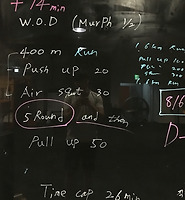 +14min
W.O.D (MurPh 1/2)
400 m Run
Push up 20
Air sqat 30
5 Round and then
Pull up 50
Time cap 26min
1.6 km Run
Pull up 100
300
1.6 km Run
8/6
D-